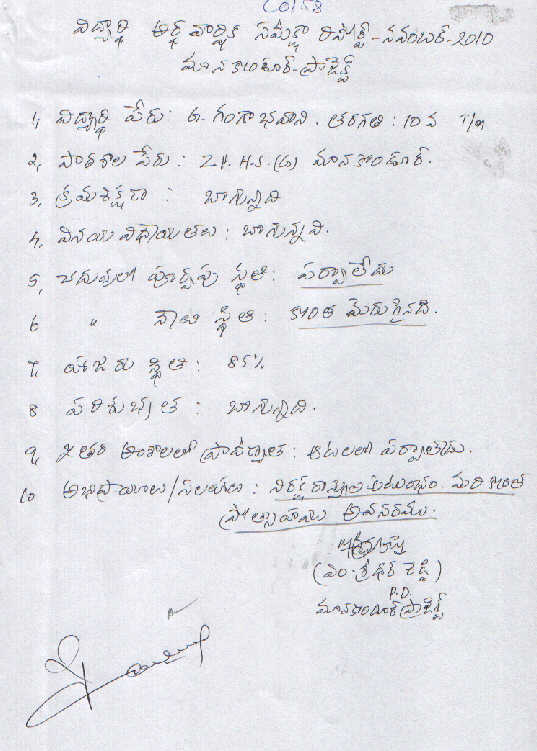 విద్యార్థి అర్థ వార్షిక సమీక్షా రిపోర్ట్ - నవంబర్ - 2010
మానకొండూర్ - ప్రాజెక్ట్
1, విద్యార్థి పేరు: ఉ. గంగాభవాని. తరగతి: 10 వ T/m
2, పాఠశాల పేరు: Z.P. H.S. (G) మానకొండూర్.
3, క్రమశిక్షణ : బాగున్నది
4, వినయ విధేయతలు : బాగున్నవి.
5, చదువులో పూర్వపు స్థితి: పర్వాలేదు
6 " నేటి స్థితి : కొంత మెరుగైనది.
7, హాజరు స్థితి : 85%
8 పరిశుభ్రత : బాగున్నది.
9, ఇతర అంశాలలో ప్రావీణ్యత : ఆటలలో పర్వాలేదు.
10 అభిప్రాయాలు/సలహాలు : కుటుంబం మరి కొంత
ప్రోత్సాహము అవసరము.
(ఎం. శ్రీధర్ రెడ్డి)
P.D.
మానకొండూర్ ప్రాజెక్ట్